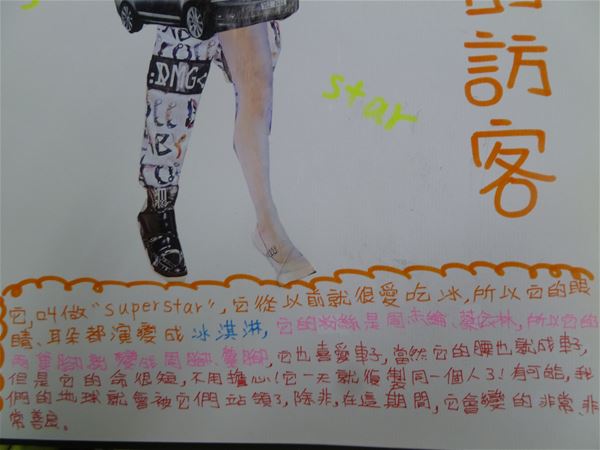 的訪客
star
:DMG<
它,叫做"superstar",它從以前就很愛吃冰,所以它的眼
睛、耳朵都演變成冰淇淋,它的粉絲是周杰綸、蔡依林,所以它的
兩隻腳就變成周腳、蔡腳,它也喜愛車子,當然它的腰也就成車子,
但是它的命很短,不用擔心!它一天就複製同一個人了!有可能,我
們的地球就會被它們站領了,除非,在這期間,它會變的非常、非
常善良。